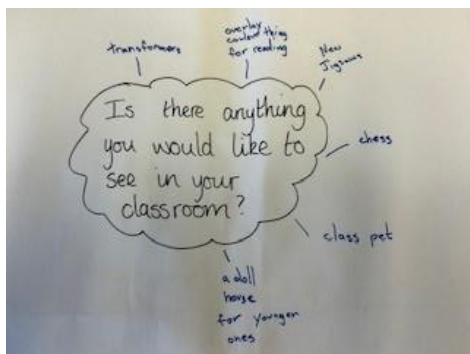 transformers
overlay
colour thing
for reading
New
Jigsaws
Is there anything
you would like to
see in your
classroom?
chess
class pet
a doll
house
for younger
ones